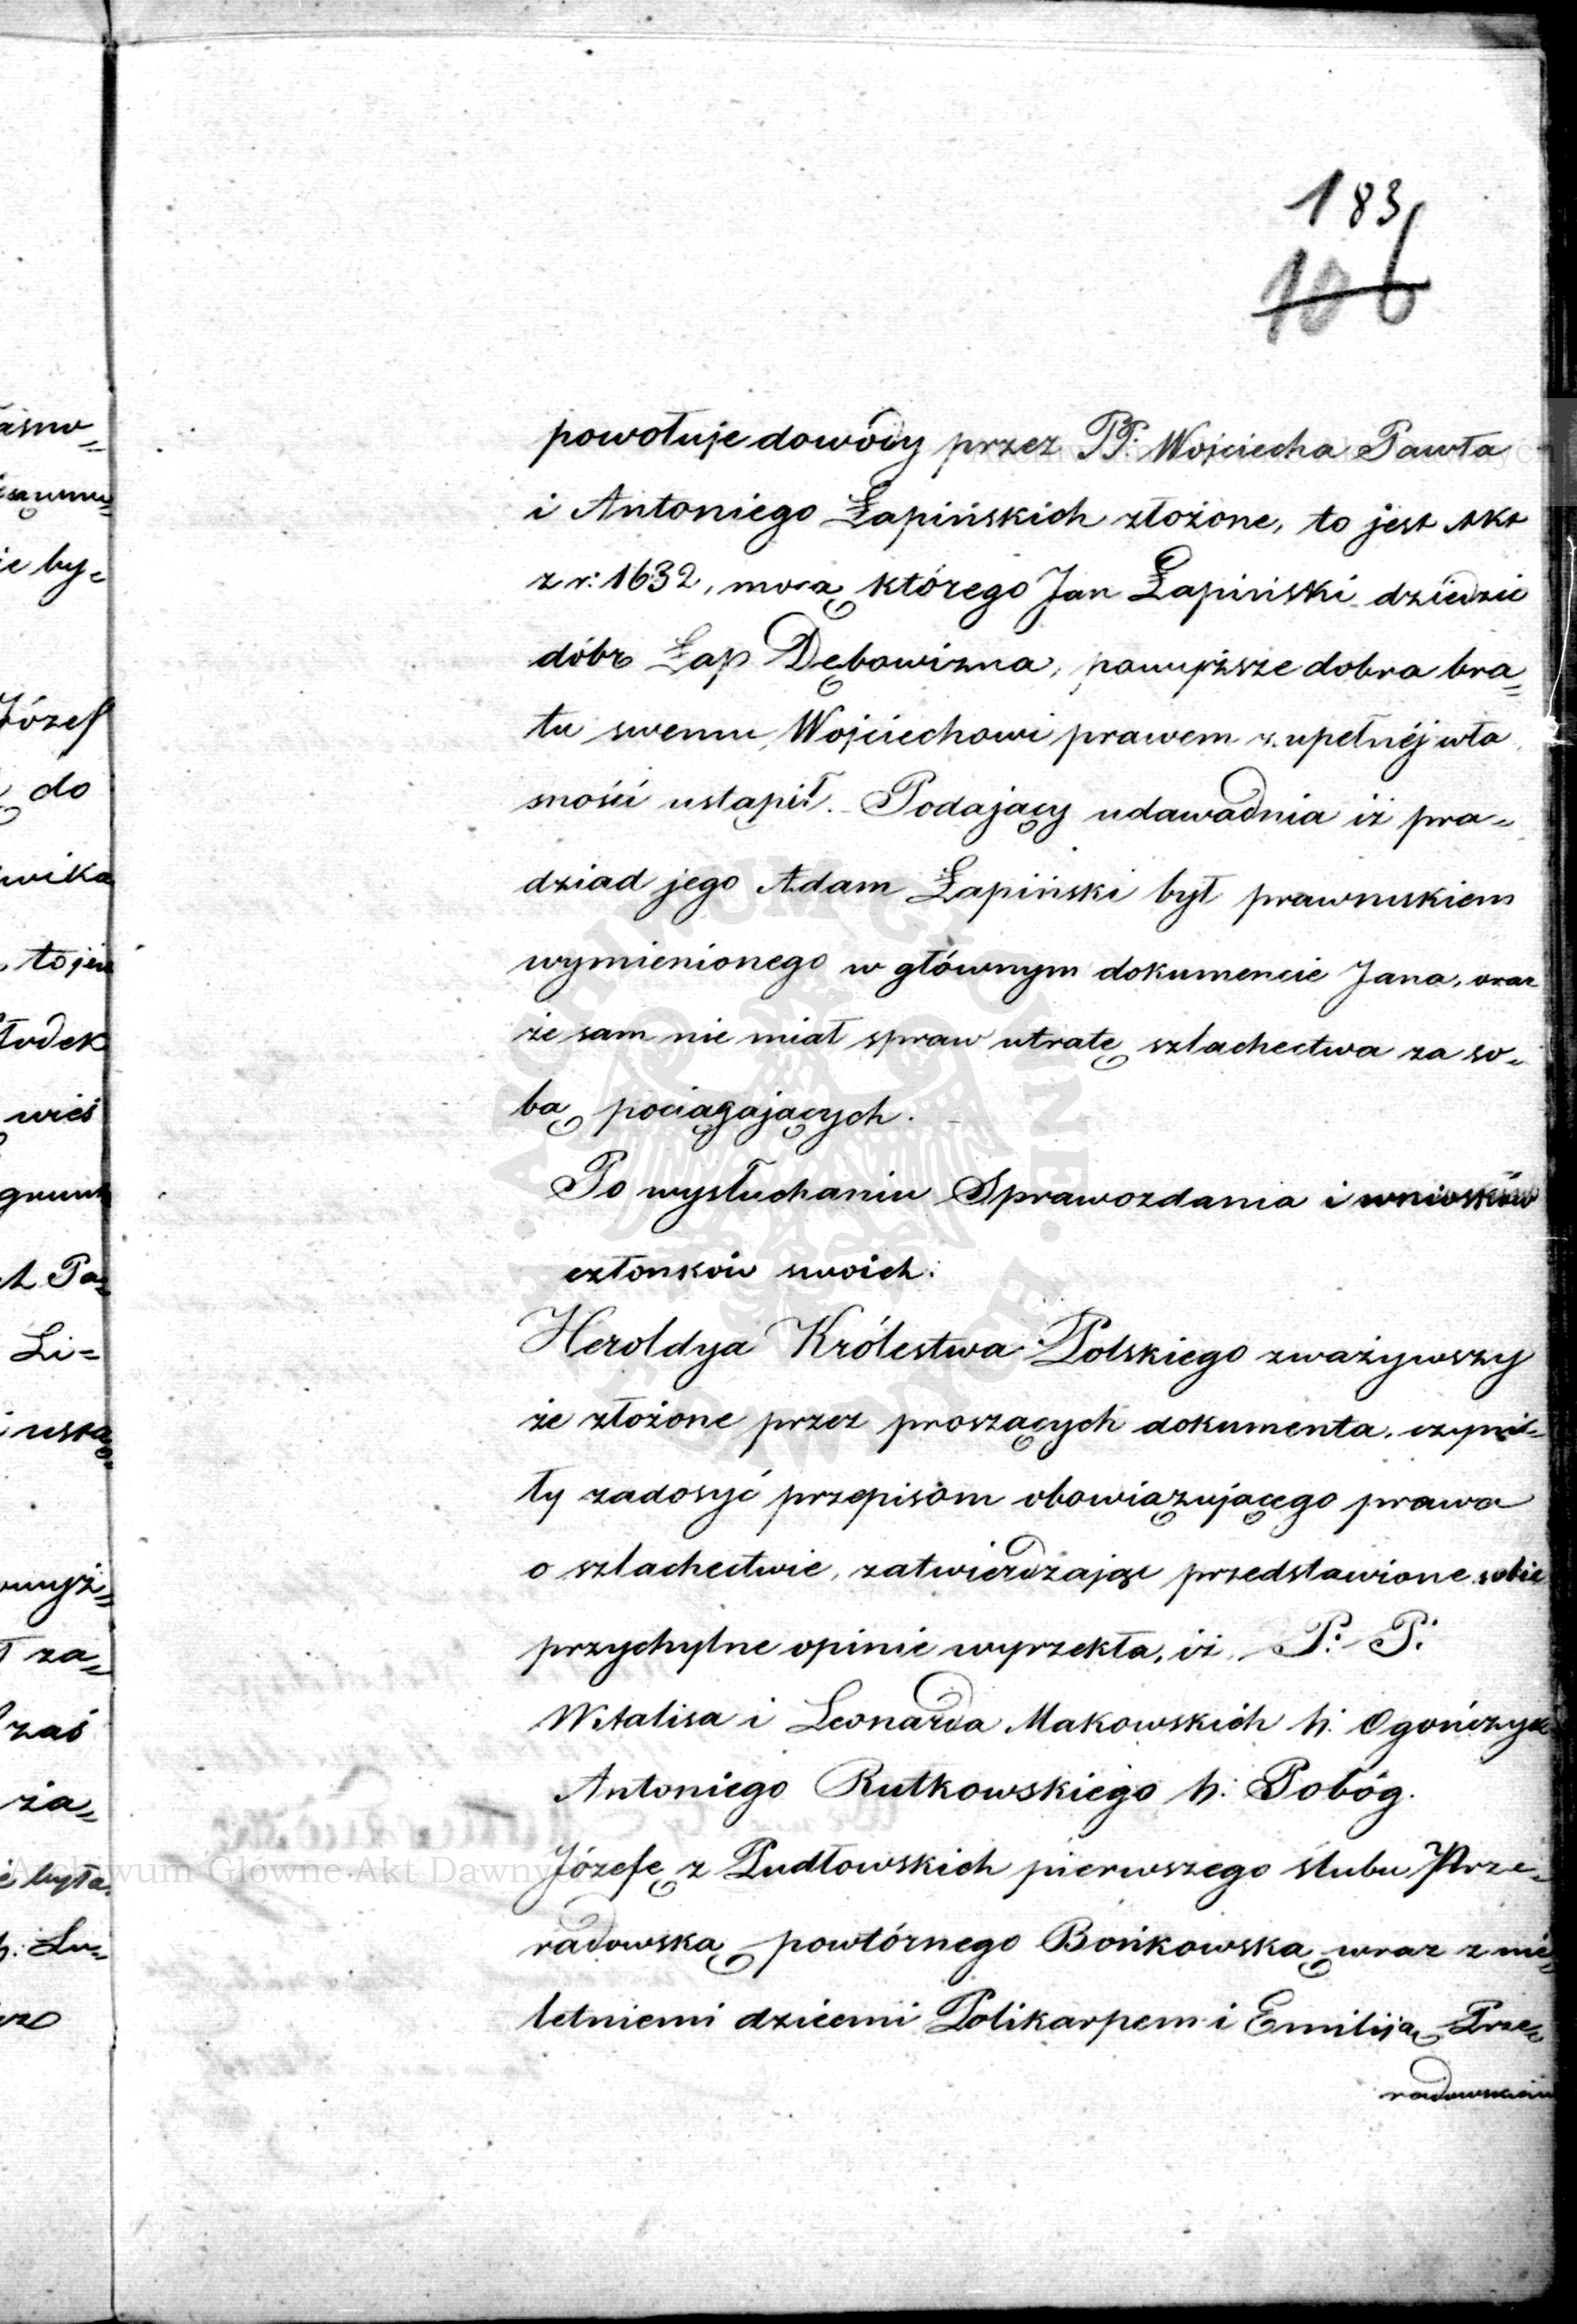 183
106
powołuje dowody przez PP. Wojciecha Pawła
i Antoniego Łapińskich złożone, to jest Akt
z r: 1632, mocą którego Jan Łapiński dziedzic
dóbr Łap Dębowizna, powyższe dobra bra=
tu swemu Wojciechowi prawem zupełnéj wła
sności ustąpił. Podający udawadnia iż pra=
dziad jego Adam Łapiński był prawnukiem
wymienionego w głównym dokumencie Jana, oraz
że sam nie miał spraw utratę szlachectwa za so=
bą pociągających.
Po wysłuchaniu Sprawozdania i wniosków
członków swoich:
Heroldya Królestwa Polskiego zważywszy
że złożone przez proszących dokumenta, czyni=
ły zadosyć przepisom obowiązującego prawa
o szlachectwie, zatwierdzając przedstawione sobie
przychylne opinie wyrzekła, iż P: P:
Witalisa i Leonarda Makowskich h: Ogończyk
Antoniego Rutkowskiego h: Pobóg.
Józefę z Pudłowskich pierwszego ślubu Prze=
radowską powtórnego Bońkowską wraz z nie=
letniemi dziećmi Polikarpem i Emiliją Prze=
radowskiemi
asno=
ie by=
Józef
do
wika
to jest
wieś
grunt
Pa=
Li=
za=
zaś
ża=
była
h: Lu=
Archiwum Główne Akt Dawnych
ARCHIWUM GŁÓWNE AKT DAWNYCH